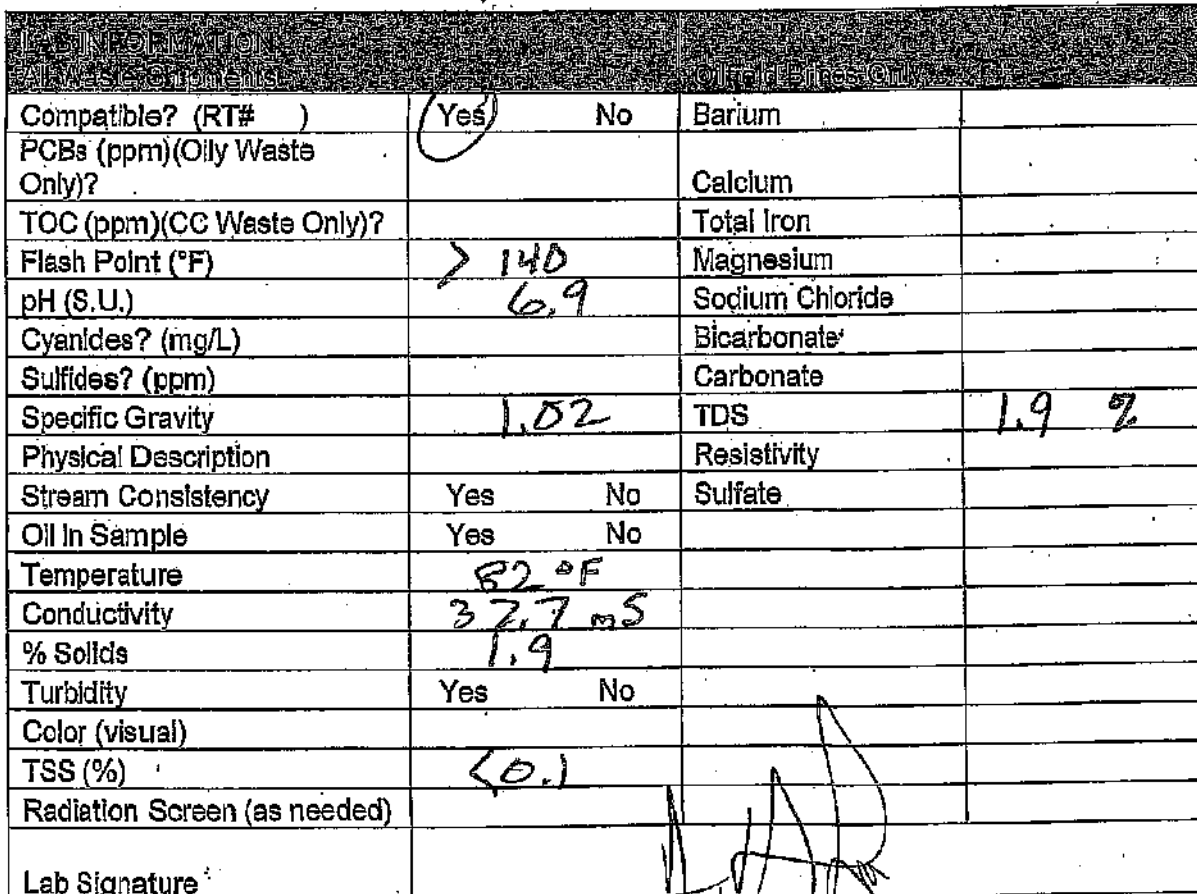 LAB INFORMATION
All Waste Shipments Oilfield Brines Only
Compatible? (RT# ) Yes No Barium
PCBs (ppm)(Oily Waste
Only)? Calcium
TOC (ppm)(CC Waste Only)? Total Iron
Flash Point (°F) > 140 Magnesium
pH (S.U.) 6.9 Sodium Chloride
Cyanides? (mg/L) Bicarbonate
Sulfides? (ppm) Carbonate
Specific Gravity 1.02 TDS 1.9 %
Physical Description Resistivity
Stream Consistency Yes No Sulfate
Oil In Sample Yes No
Temperature °F
Conductivity mS
% Solids 1.9
Turbidity Yes No
Color (visual)
TSS (%) <0.1
Radiation Screen (as needed)
Lab Signature